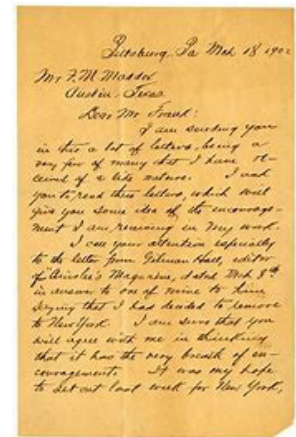 Pittsburg, Pa Mch 18 1902
Mr F. M. Maddox
Austin, Texas
Dear Mr Frank:
I am sending you
in this a lot of letters, being a
very few of many that I have re-
ceived of a like nature. I wish
you to read these letters, which will
give you some idea of the encourage-
ment I am receiving in my work.
I call your attention especially
to the letter from Gilman Hall, editor
of Ainslee's Magazine, dated Mch 8th
in answer to one of mine to him
saying that I had decided to remove
to New York. I am sure that you
will agree with me in thinking
that it has the very breath of en-
couragement. It was my hope
to set out last week for New York,